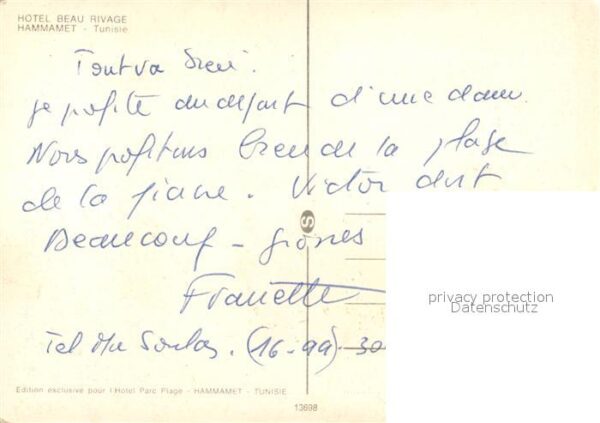 HOTEL BEAU RIVAGE
HAMMAMET - Tunisie
Tout va bien.
Je profite du départ d'une dame.
Nous profitons bien de la plage
de la piscine. Victor dort
Beaucoup - grosses
Francette
Tel Me (16-99) 30
privacy protection
Datenschutz
Edition exclusive pour l'Hôtel Parc Plage - HAMMAMET - TUNISIE
13698